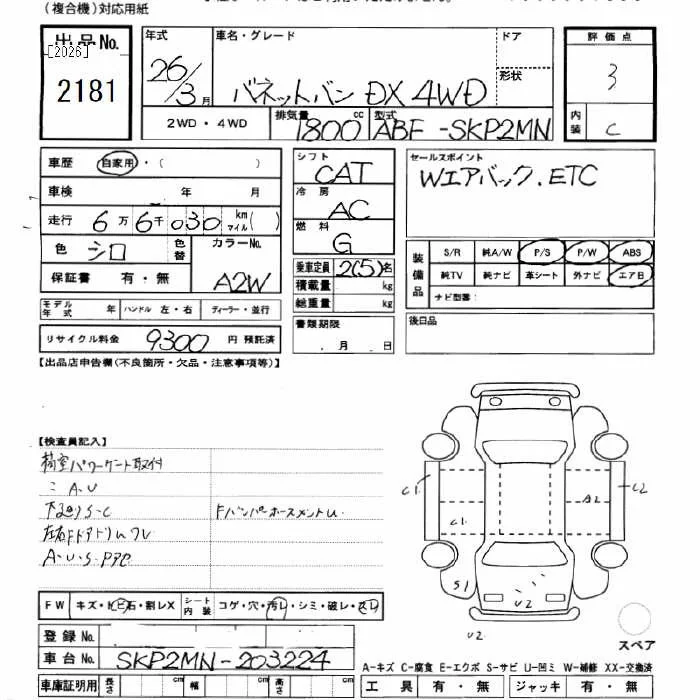 (複合機)対応用紙
出品No.
[2026]
2181
年式
26/3月
車名・グレード
バネットバン DX 4WD
ドア
形状
評価点
3
内装
C
2WD・4WD
排気量
1800cc
型式
ABF-SKP2MN
車歴
自家用・( )
車検
年 月
走行
6万6千030 km マイル( )
色
シロ
色替
カラーNo.
A2W
保証書 有・無
モデル年式 年 ハンドル 左・右 ディーラー・並行
リサイクル料金 9300 円 預託済
シフト
CAT
冷房
AC
燃料
G
乗車定員 2(5)名
積載量 kg
総重量 kg
書類期限
. 月 . 日
セールスポイント
Wエアバック.ETC
装備品
S/R 純A/W P/S P/W ABS
純TV 純ナビ 革シート 外ナビ エアB
ナビ型番:
後日品
【出品店申告欄(不良箇所・欠品・注意事項等)】
【検査員記入】
荷室パワーゲート取付
〃 A.U
下廻りS-C
A.U.S.
FW キズ・ヒビ石・割レX
シート内装 コゲ・穴・汚レ・シミ・破レ・スレ
登録No.
車台No. SKP2MN-203224
車庫証明用 長さ cm 幅 cm 高さ cm
C1
C1
A2
C2
S1
U2
U2
スペア
A-キズ C-腐食 E-エクボ S-サビ U-凹ミ W-補修 XX-交換済
工具 有・無 ジャッキ 有・無